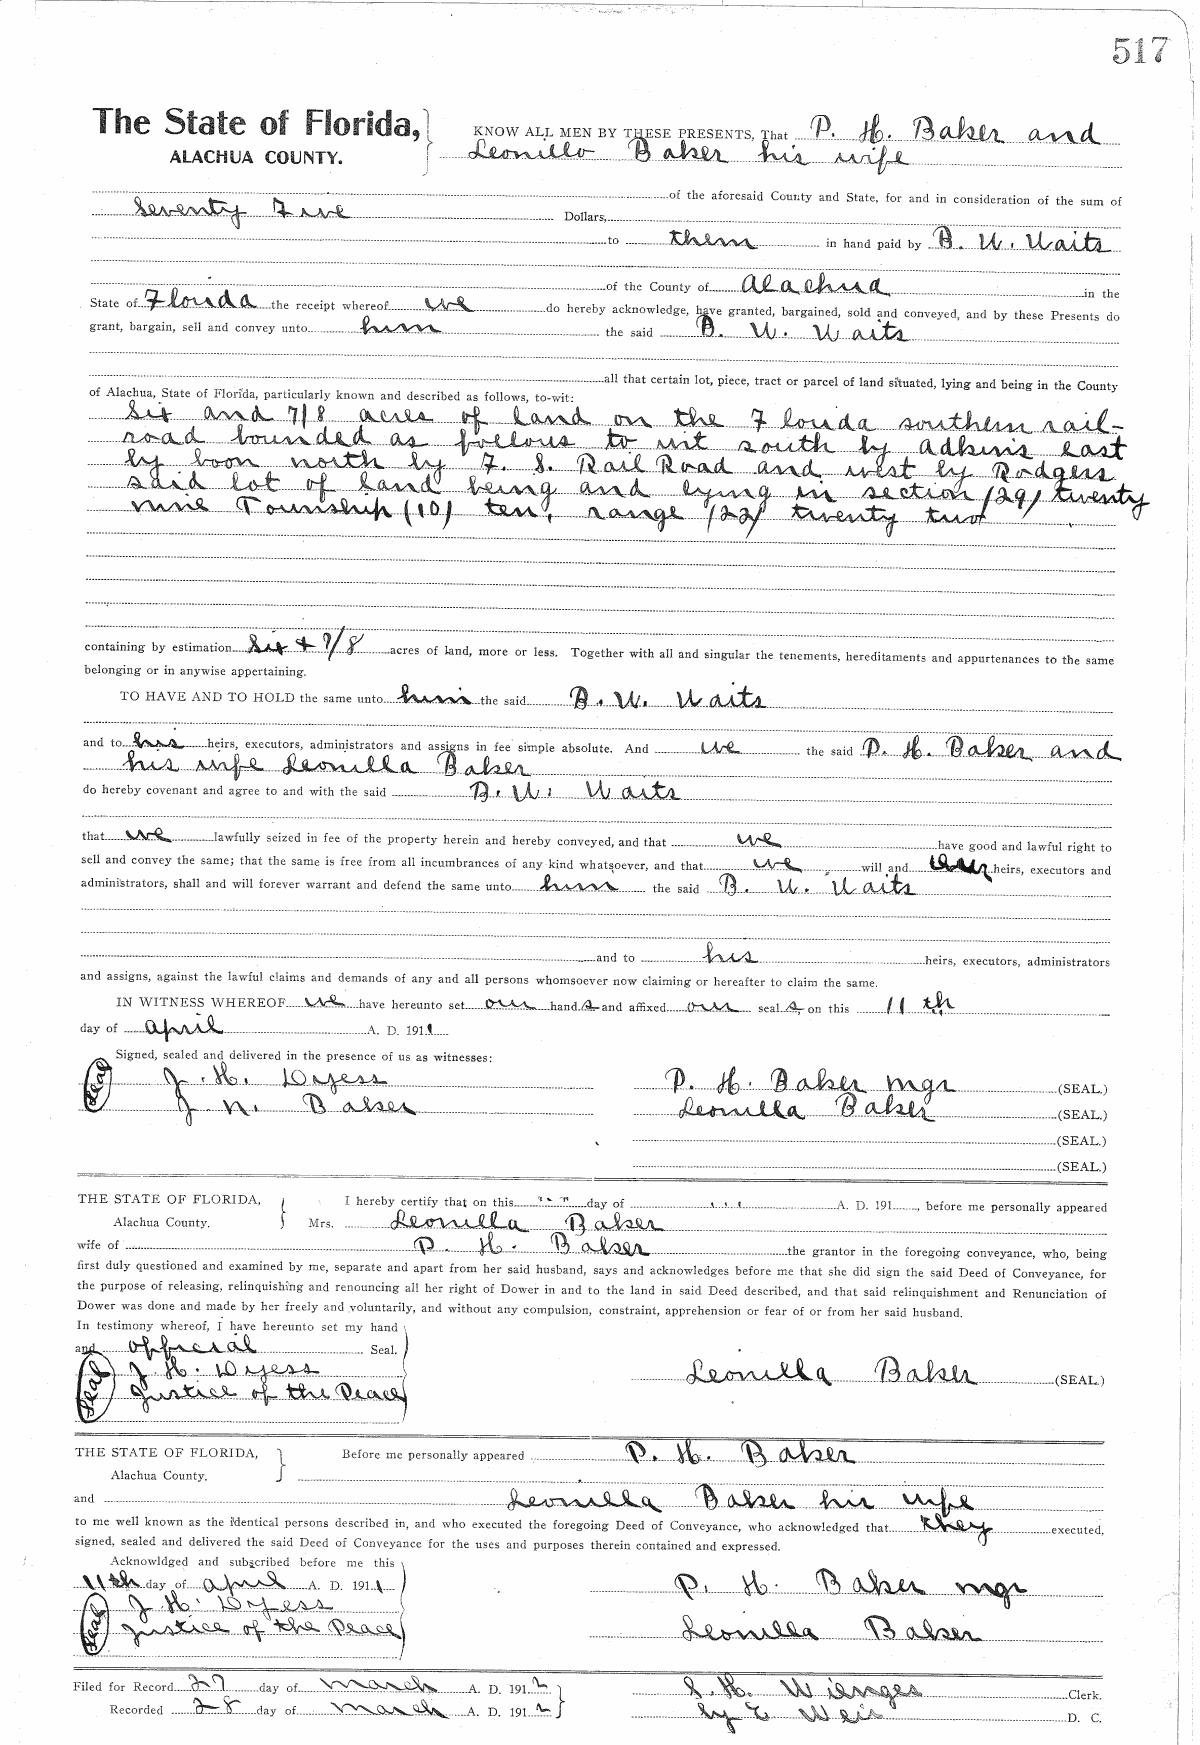 517
The State of Florida,
ALACHUA COUNTY.
KNOW ALL MEN BY THESE PRESENTS, That P. H. Baker and
Leonillo Baker his wife
of the aforesaid County and State, for and in consideration of the sum of
Seventy Five Dollars,
to them in hand paid by B. W. Waits
of the County of Alachua in the
State of Florida the receipt whereof we do hereby acknowledge, have granted, bargained, sold and conveyed, and by these Presents do
grant, bargain, sell and convey unto him the said B. W. Waits
all that certain lot, piece, tract or parcel of land situated, lying and being in the County
of Alachua, State of Florida, particularly known and described as follows, to-wit:
Six and 7/8 acres of land on the Florida southern rail-
road bounded as follows to wit south by Adkins east
by boon north by F. S. Rail Road and west by Rodgers
said lot of land being and lying in section (29) twenty
nine Township (10) ten, range (22) twenty two
containing by estimation Six + 7/8 acres of land, more or less. Together with all and singular the tenements, hereditaments and appurtenances to the same
belonging or in anywise appertaining.
TO HAVE AND TO HOLD the same unto him the said B. W. Waits
and to his heirs, executors, administrators and assigns in fee simple absolute. And we the said P. H. Baker and
his wife Leonilla Baker
do hereby covenant and agree to and with the said B. W. Waits
that we lawfully seized in fee of the property herein and hereby conveyed, and that we have good and lawful right to
sell and convey the same; that the same is free from all incumbrances of any kind whatsoever, and that we will and our heirs, executors and
administrators, shall and will forever warrant and defend the same unto him the said B. W. Waits
and to his heirs, executors, administrators
and assigns, against the lawful claims and demands of any and all persons whomsoever now claiming or hereafter to claim the same.
IN WITNESS WHEREOF we have hereunto set our hand s and affixed our seal s, on this 11 th
day of April A. D. 1911
Signed, sealed and delivered in the presence of us as witnesses:
Seal J. H. Dyess P. H. Baker mgr (SEAL.)
J. N. Baker Leonilla Baker (SEAL.)
(SEAL.)
(SEAL.)
THE STATE OF FLORIDA,
Alachua County.
I hereby certify that on this day of A. D. 191 , before me personally appeared
Mrs. Leonilla Baker
wife of P. H. Baker the grantor in the foregoing conveyance, who, being
first duly questioned and examined by me, separate and apart from her said husband, says and acknowledges before me that she did sign the said Deed of Conveyance, for
the purpose of releasing, relinquishing and renouncing all her right of Dower in and to the land in said Deed described, and that said relinquishment and Renunciation of
Dower was done and made by her freely and voluntarily, and without any compulsion, constraint, apprehension or fear of or from her said husband.
In testimony whereof, I have hereunto set my hand
and official Seal.
Seal J. H. Dyess
Justice of the Peace
Leonilla Baker (SEAL.)
THE STATE OF FLORIDA,
Alachua County.
Before me personally appeared P. H. Baker
and Leonilla Baker his wife
to me well known as the identical persons described in, and who executed the foregoing Deed of Conveyance, who acknowledged that they executed,
signed, sealed and delivered the said Deed of Conveyance for the uses and purposes therein contained and expressed.
Acknowldged and subscribed before me this
11th day of April A. D. 1911
Seal J. H. Dyess
Justice of the Peace
P. H. Baker mgr
Leonilla Baker
Filed for Record 27 day of March A. D. 1912
Recorded 28 day of March A. D. 1912
S. H. Wienges Clerk.
by E Weir D. C.